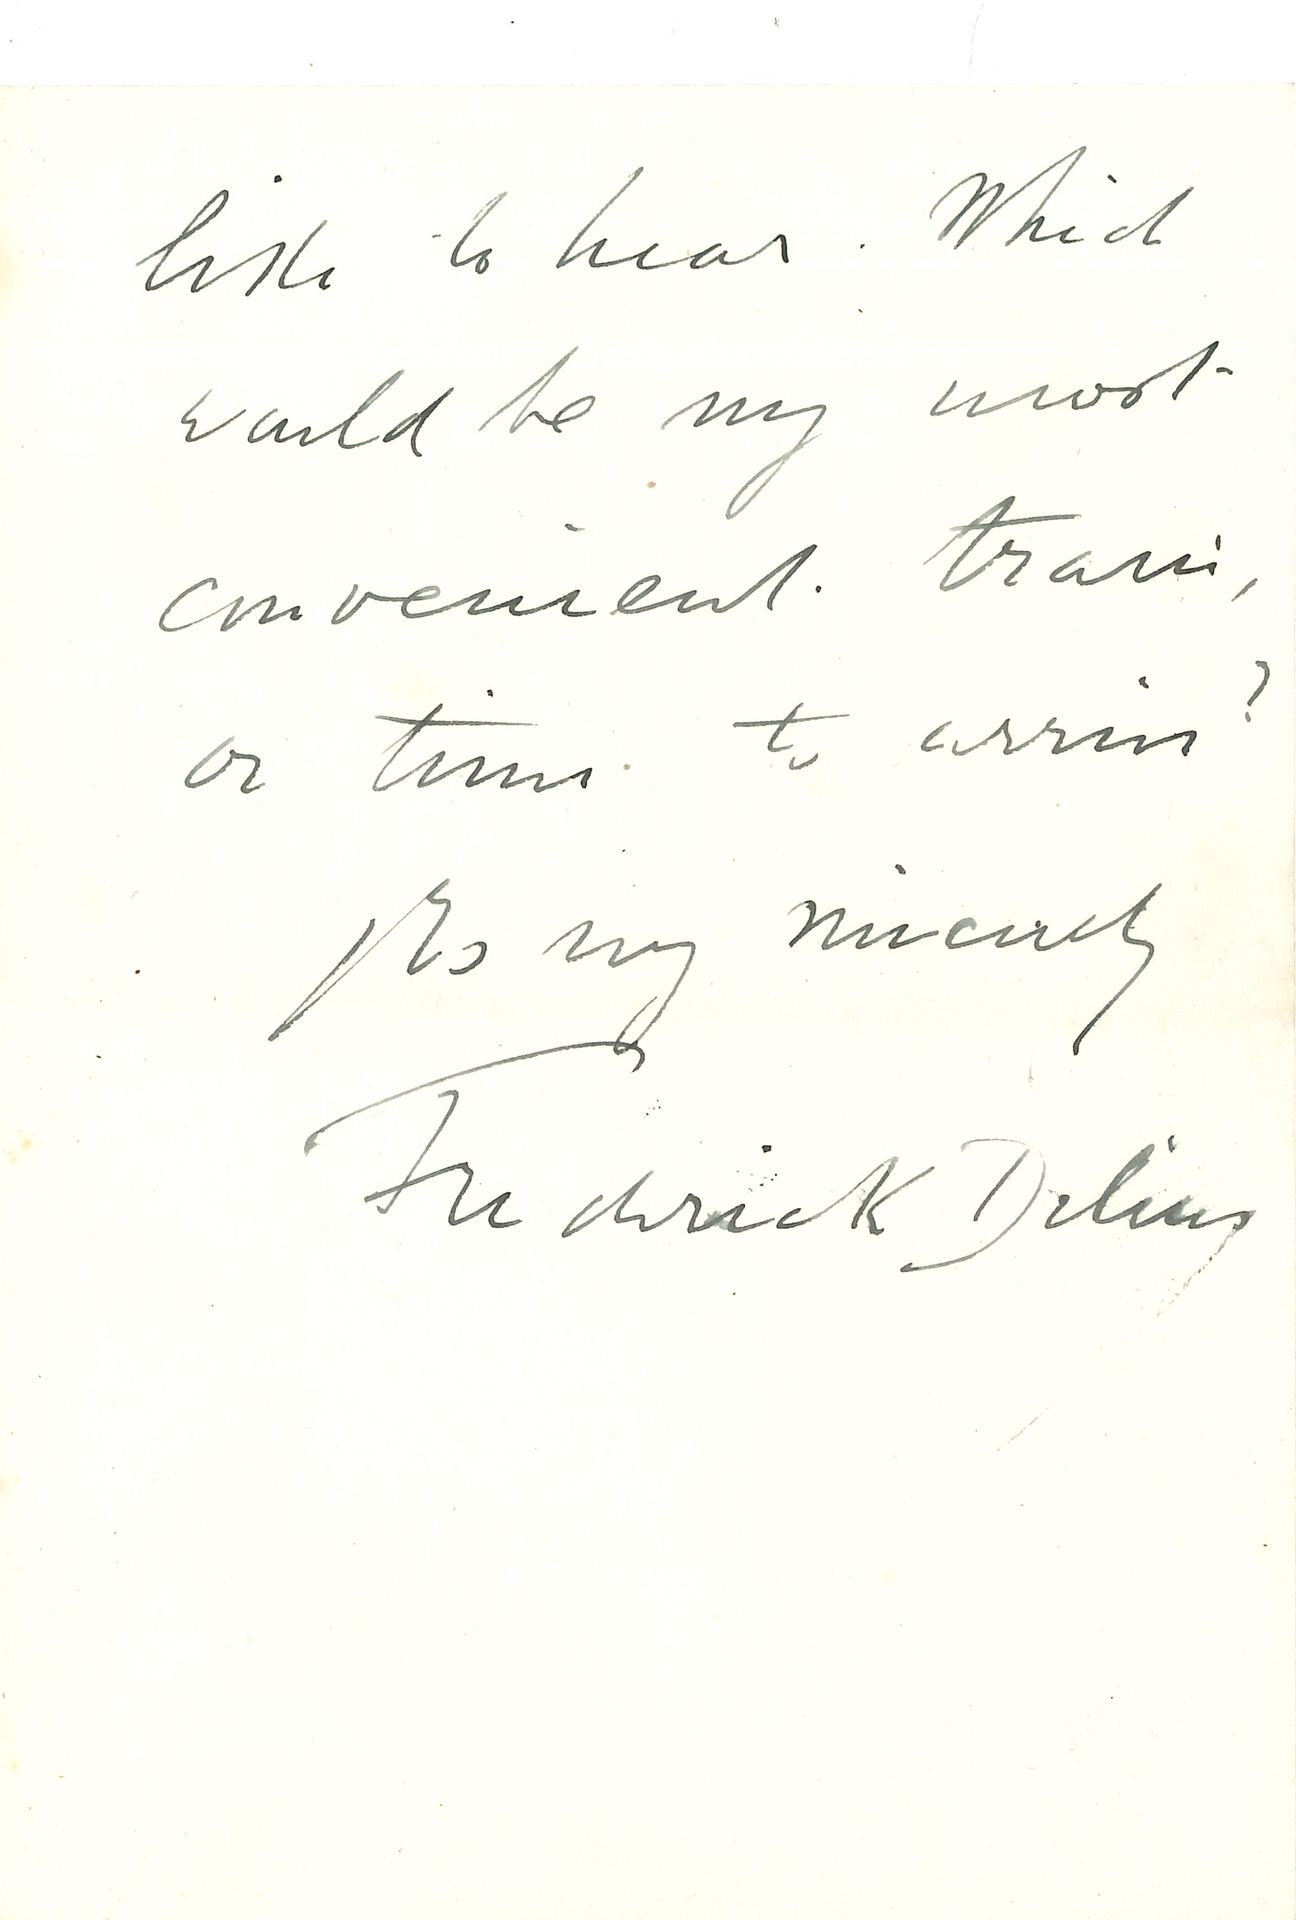 like to hear. Which
would be my most
convenient train,
or time to arrive?
Yrs very sincerely
Frederick Delius